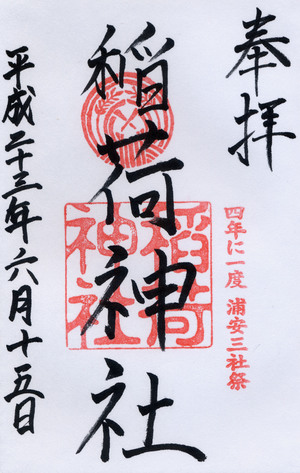 奉拝
四年に一度 浦安三社祭
稲荷神社
稲荷
神社
平成二十三年六月十五日